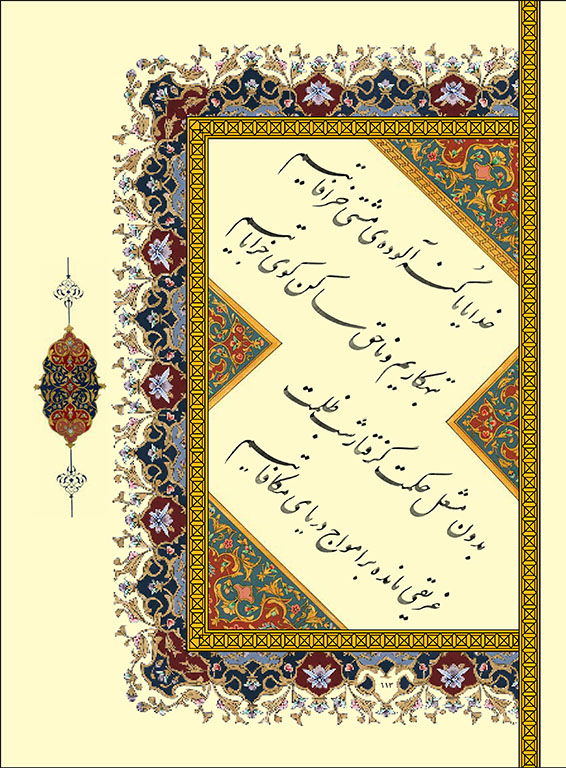 خدایا پاک کن آلوده‌ی مشتی خرافاتیم
تبهکاریم و ناحق ساکن کوی خراباتیم
بدون مشعل حکمت گرفتار شب ظلمت
غریقی مانده بر امواج دریای مکافاتیم
۱۱۳